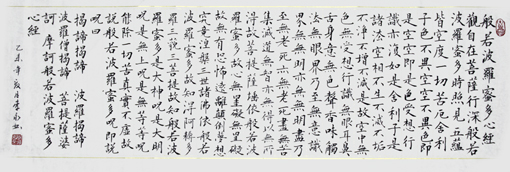 般若波羅蜜多心經
觀自在菩薩行深般若
波羅蜜多時照見五蘊
皆空度一切苦厄舍利
子色不異空空不異色即
是空空即是色受想行
識亦復如是舍利子是
諸法空相不生不滅不垢
不淨不增不減是故空中無
色無受想行識無眼耳鼻
舌身意無色聲香味觸
法無眼界乃至無意識
界無無明亦無無明盡乃
至無老死亦無老死盡無苦
集滅道無智亦無得以無所
得故菩提薩埵依般若波
羅蜜多故心無罣礙無罣礙
故無有恐怖遠離顛倒夢想
究竟涅槃三世諸佛依般若
波羅蜜多故得阿耨多
羅三藐三菩提故知般若波
羅蜜多是大神呪是大明
呪是無上呪是無等等呪
能除一切苦真實不虛故
說般若波羅蜜多呪即說
呪曰
揭諦揭諦 波羅揭諦
波羅僧揭諦 菩提薩婆
訶 摩訶般若波羅蜜多
心經
乙未年